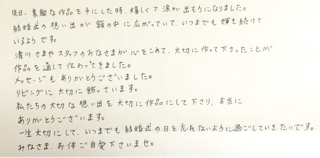 先日、素敵な作品を手にした時、嬉しくて涙が出そうになりました。
結婚式の想い出が額の中に広がっていて、いつまでも輝き続けて
いるようです。
清川さまやスタッフのみなさまが心をこめて、大切に作って下さったことが
作品を通して伝わってきました。
メッセージもありがとうございました。
リビングに大切に飾っています。
私たちの大切な想い出を大切に作品にして下さり、本当に
ありがとうございます。
一生大切にして、いつまでも結婚式の日を忘れないように過ごしていきたいです。
みなさま、お体ご自愛下さいませ。